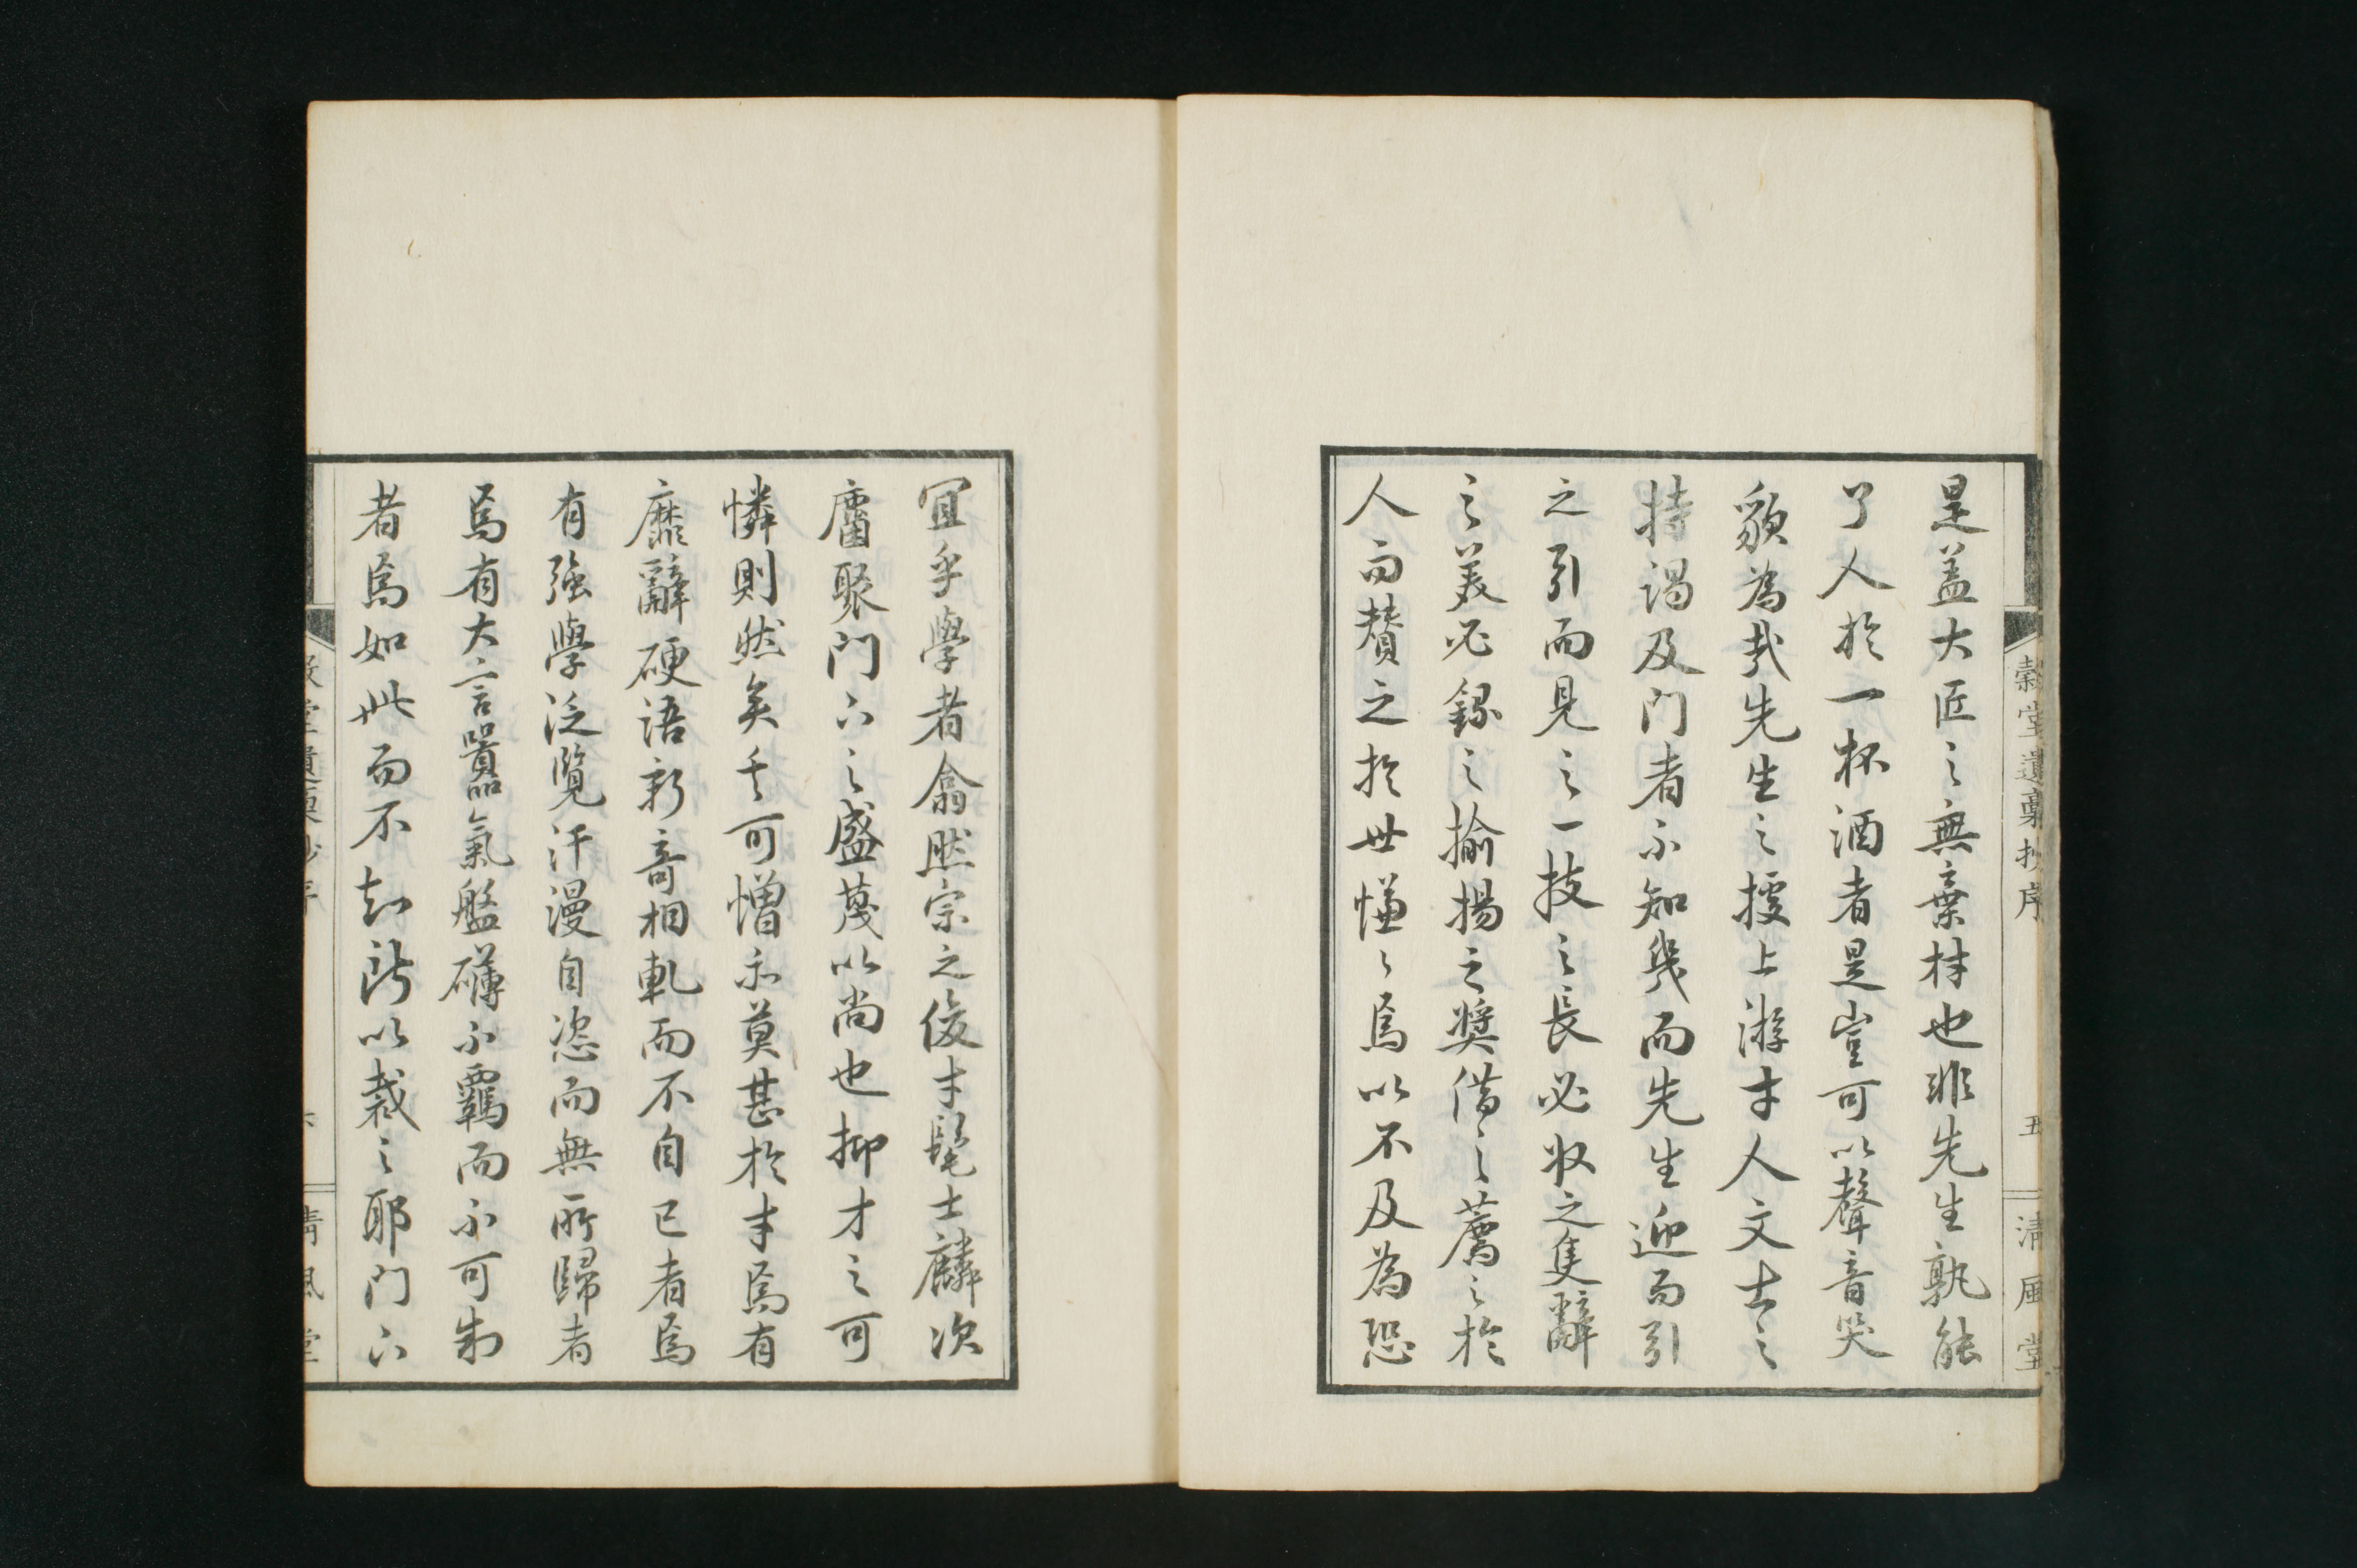 穀堂遺稾抄序
五
清風堂
是盖大匠之無棄材也非先生孰能
了人於一杯酒者是豈可以聲音笑
貌為哉先生之擾上游才人文士之
持謁及門者不知幾而先生迎而引
之引而見之一技之長必收之隻辭
之美必錄之揄揚之奬借之薦之於
人而賛之於世慊〻焉以不及為恐
宜乎學者翕然宗之俊才髦士麟次
麕聚門下之盛蔑以尚也抑才之可
憐則然矣其可憎亦莫甚於才焉有
靡辭硬語新奇相軋而不自已者焉
有強學泛覧汗漫自恣而無所歸者
焉有大言嚚氣盤礴不羈而不可制
者焉如此而不知所以裁之耶門下
清風堂